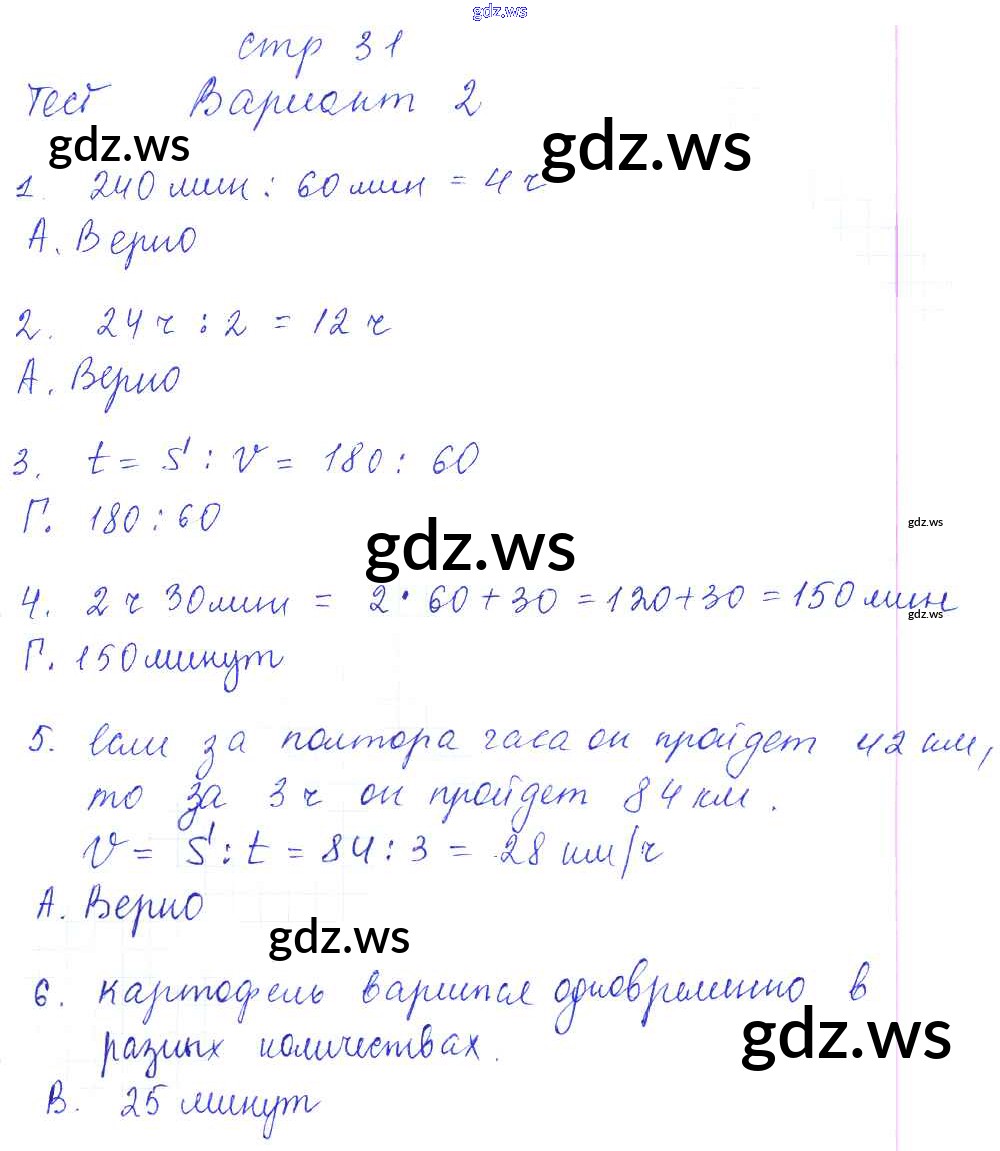 gdz.ws
стр 31
Тест Вариант 2
gdz.ws gdz.ws
1. 240 мин : 60 мин = 4 ч
А. Верно
2. 24 ч : 2 = 12 ч
А. Верно
3. t = S : v = 180 : 60
Г. 180 : 60
gdz.ws
gdz.ws
4. 2 ч 30 мин = 2 • 60 + 30 = 120 + 30 = 150 мин
gdz.ws
Г. 150 минут
5. Если за полтора часа он пройдет 42 км,
то за 3 ч он пройдет 84 км.
v = S : t = 84 : 3 = 28 км/ч
А. Верно
gdz.ws
6. Картофель варится одновременно в
разных количествах.
gdz.ws
В. 25 минут